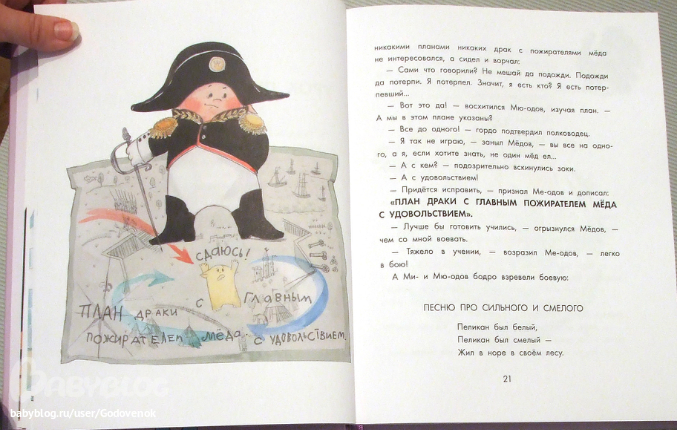 сдаюсь!
ПЛАН драки с Главным
пожирателем мёда с удовольствием.
никакими планами никаких драк с пожирателями мёда
не интересовался, а сидел и ворчал:
— Сами что говорили? Не мешай да подожди. Подожди
да потерпи. Я потерпел. Значит, я есть кто? Я есть потер-
певший...
— Вот это да! — восхитился Мю-одов, изучая план. —
А мы в этом плане указаны?
— Все до одного! — гордо подтвердил полководец.
— Я так не играю, — заныл Мёдов, — вы все на одно-
го, а я, если хотите знать, не один мёд ел...
— А с кем? — подозрительно вскинулись заки.
— А с удовольствием!
— Придётся исправить, — признал Ме-одов и дописал:
«ПЛАН ДРАКИ С ГЛАВНЫМ ПОЖИРАТЕЛЕМ МЁДА
С УДОВОЛЬСТВИЕМ».
— Лучше бы готовить учились, — огрызнулся Мёдов,
чем со мной воевать.
— Тяжело в учении, — возразил Ме-одов, — легко
в бою!
А Ми- и Мю-одов бодро взревели боевую:
ПЕСНЮ ПРО СИЛЬНОГО И СМЕЛОГО
Пеликан был белый,
Пеликан был смелый —
Жил в норе в своём лесу.
21
BABYBLOG
babyblog.ru/user/Godovenok